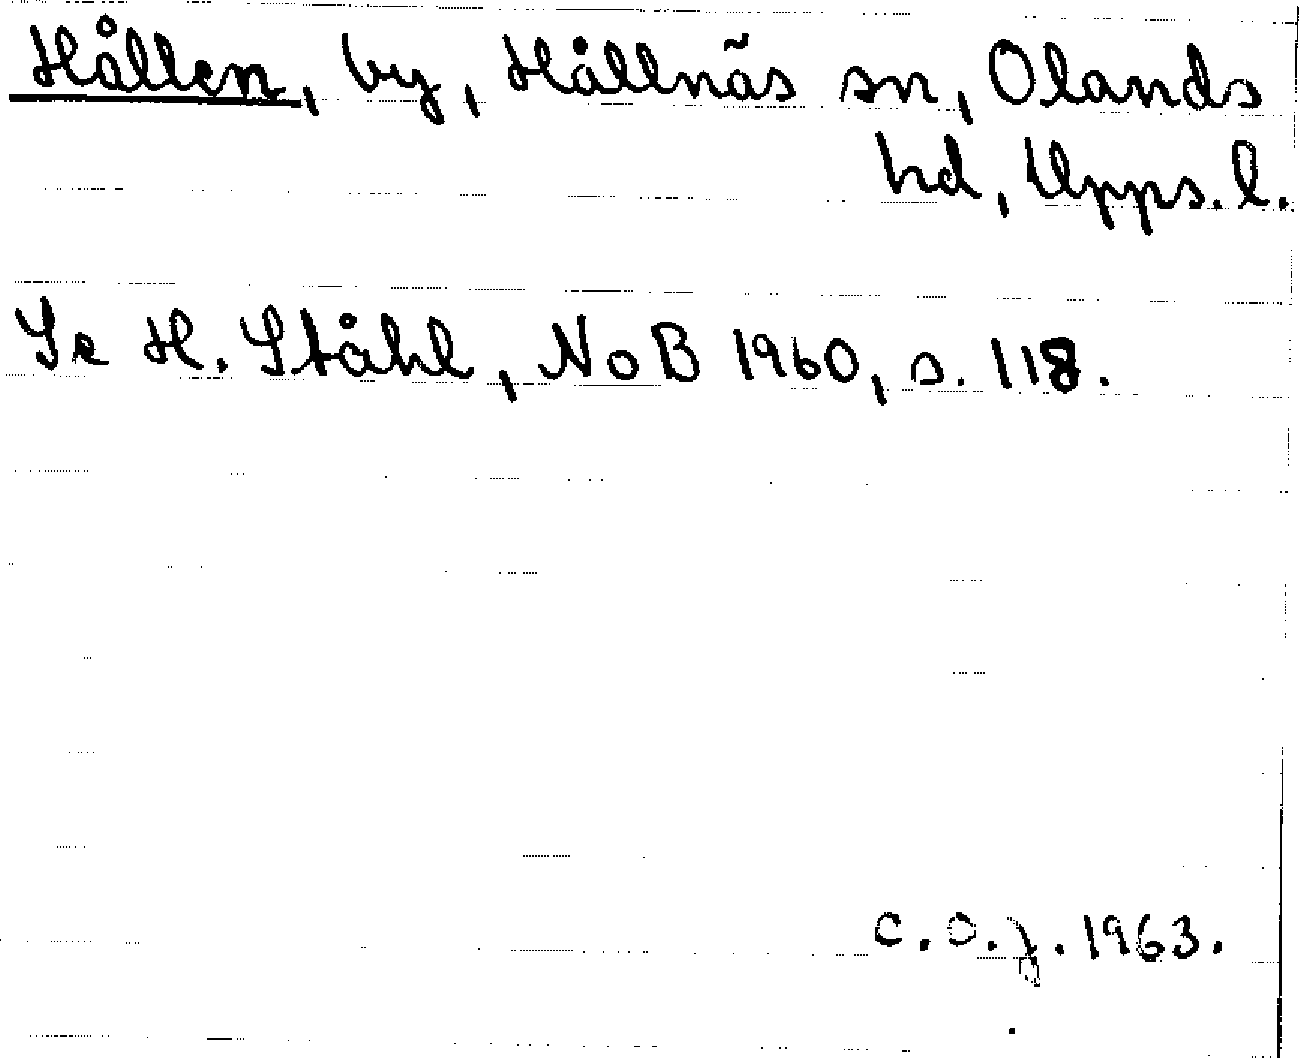 Hållen, by, Hållnäs sn, Olands
hd, Upps. l.
Se H. Ståhl, NoB 1960, s. 118.
C.O.J. 1963.